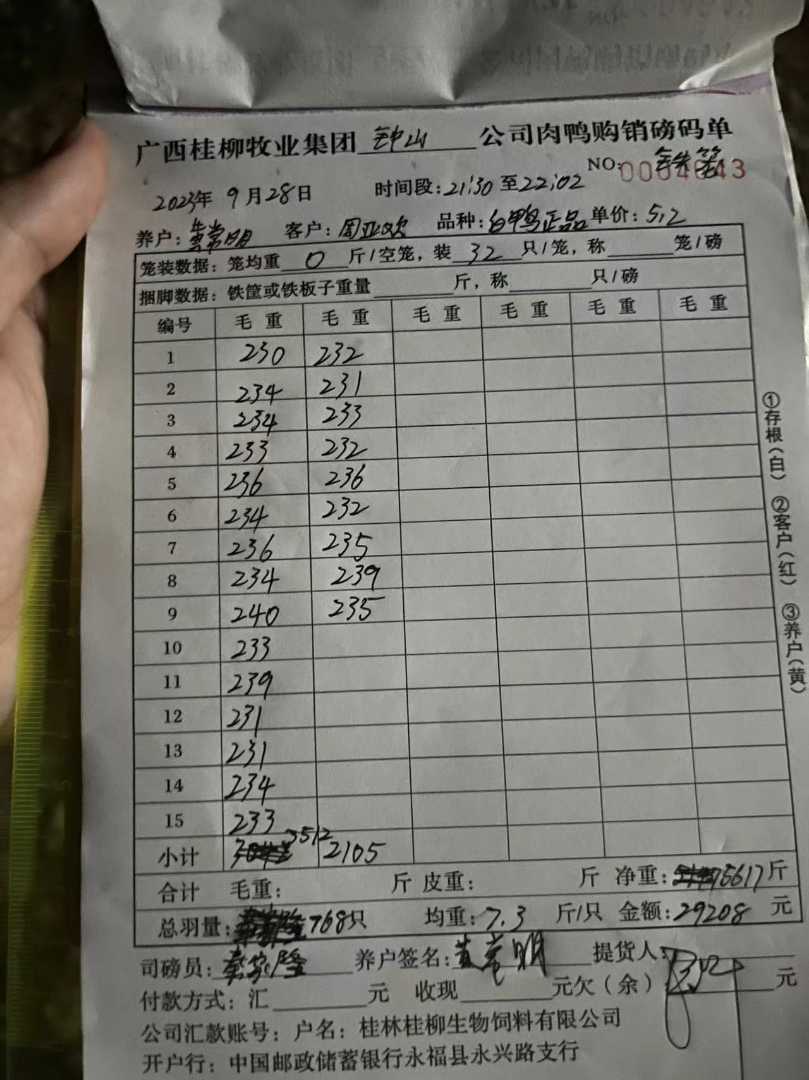 广西桂柳牧业集团 钟山 公司肉鸭购销磅码单
NO: 铁笼
2023年 9月28日 时间段: 21:30 至 22:02
养户: 黄常明 客户: 周亚欢 品种: 白鸭正品 单价: 5.2
笼装数据: 笼均重 0 斤/空笼, 装 32 只/笼, 称 笼/磅
捆脚数据: 铁筐或铁板子重量 斤, 称 只/磅
编号 毛重 毛重 毛重 毛重 毛重 毛重
1 230 232
2 234 231
3 234 233
4 233 232
5 236 236
6 234 232
7 236 235
8 234 239
9 240 235
10 233
11 239
12 231
13 231
14 234
15 233
小计 3512 2105
合计 毛重: 斤 皮重: 斤 净重: 5617斤
总羽量: 768只 均重: 7.3 斤/只 金额: 29208 元
司磅员: 养户签名: 黄常明 提货人:
付款方式: 汇 元 收现 元欠(余) 元
公司汇款账号: 户名: 桂林桂柳生物饲料有限公司
开户行: 中国邮政储蓄银行永福县永兴路支行
①存根(白) ②客户(红) ③养户(黄)